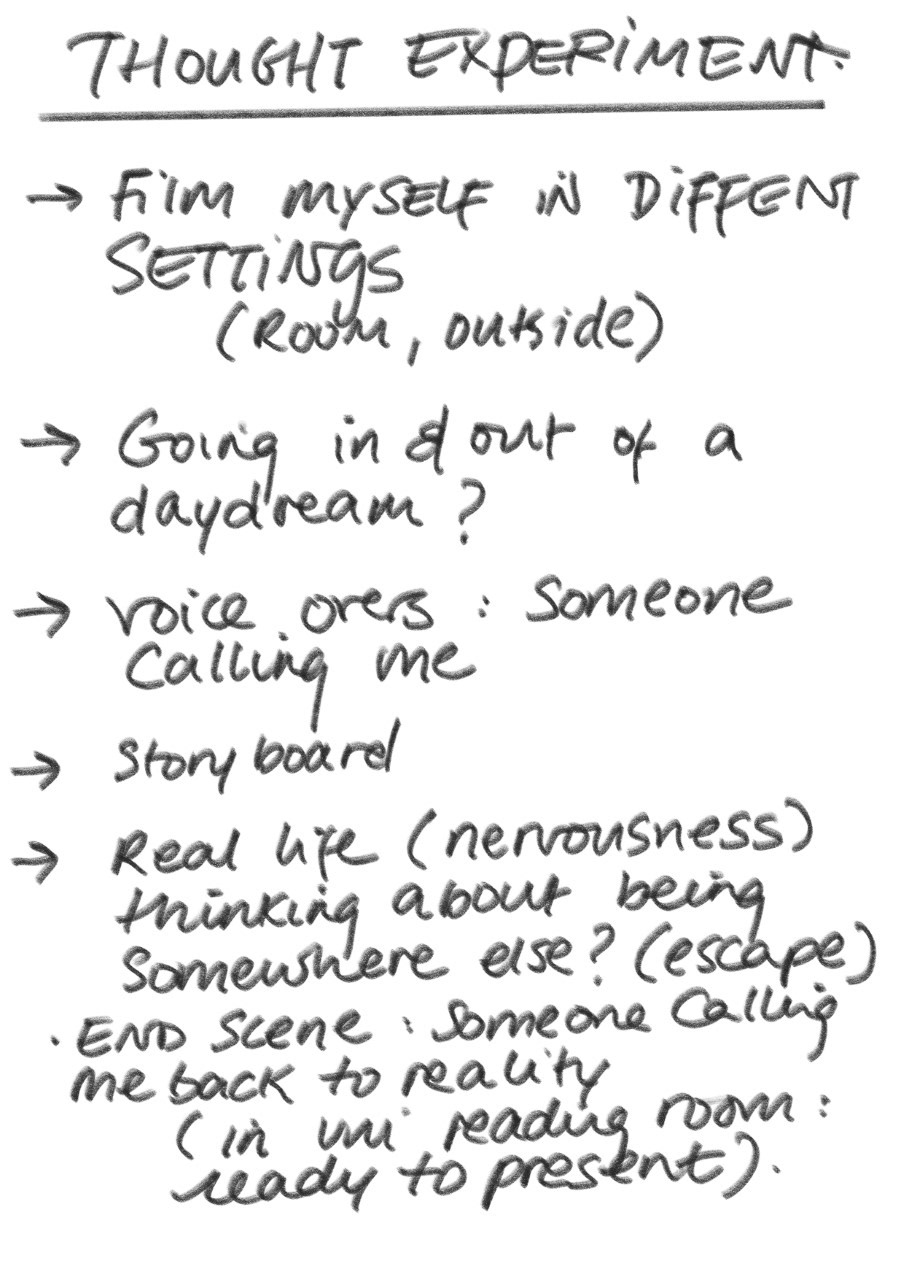 THOUGHT EXPERIMENT.
→ Film mySELF iN DiFFENT
SETTiNgS
(Room, outside)
→ Going in & out of a
daydream?
→ voice overs : Someone
Calling me
→ Story board
→ Real life (nervousness)
thinking about being
Somewhere else? (escape)
· END Scene : Someone Calling
me back to reality
(in uni reading room :
ready to present).